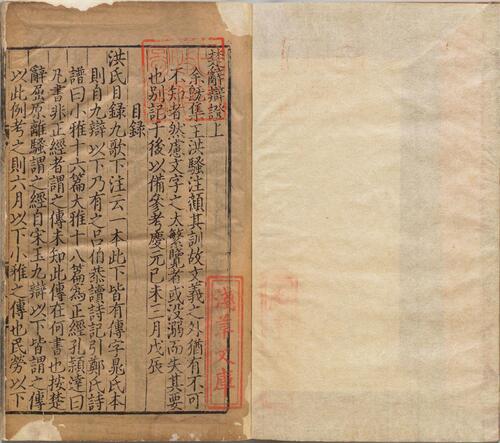 楚辭辯證上
余既集王洪騷注顧其訓故文義之外猶有不可
不知者然慮文字之太繁覽者或没溺而失其要
也别記于後以備參考慶元己未三月戊辰
目録
洪氏目録九歌下注云一本此下皆有傳字晁氏本
則自九辯以下乃有之吕伯恭讀詩記引鄭氏詩
譜曰小雅十六篇大雅十八篇為正經孔穎達曰
凡書非正經者謂之傳未知此傳在何書也按楚
辭屈原離騷謂之經自宋玉九辯以下皆謂之傳
以此例考之則六月以下小雅之傳也民勞以下
淺草文庫